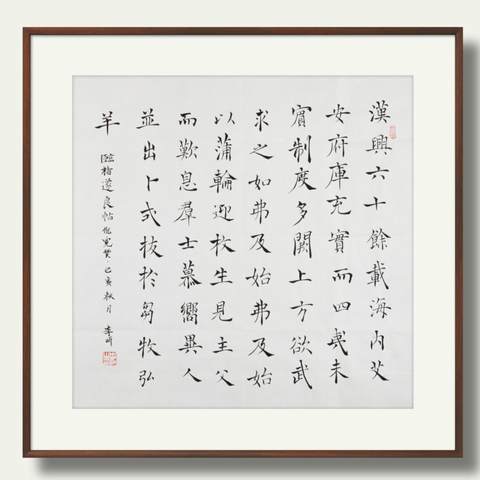 漢興六十餘載海內艾
安府庫充實而四夷未
賓制度多闕上方欲武
求之如弗及始弗及始
以蒲輪迎枚生見主父
而歎息羣士慕嚮異人
並出卜式拔於芻牧弘
羊
臨褚遂良帖倪寬贊己亥秋月李